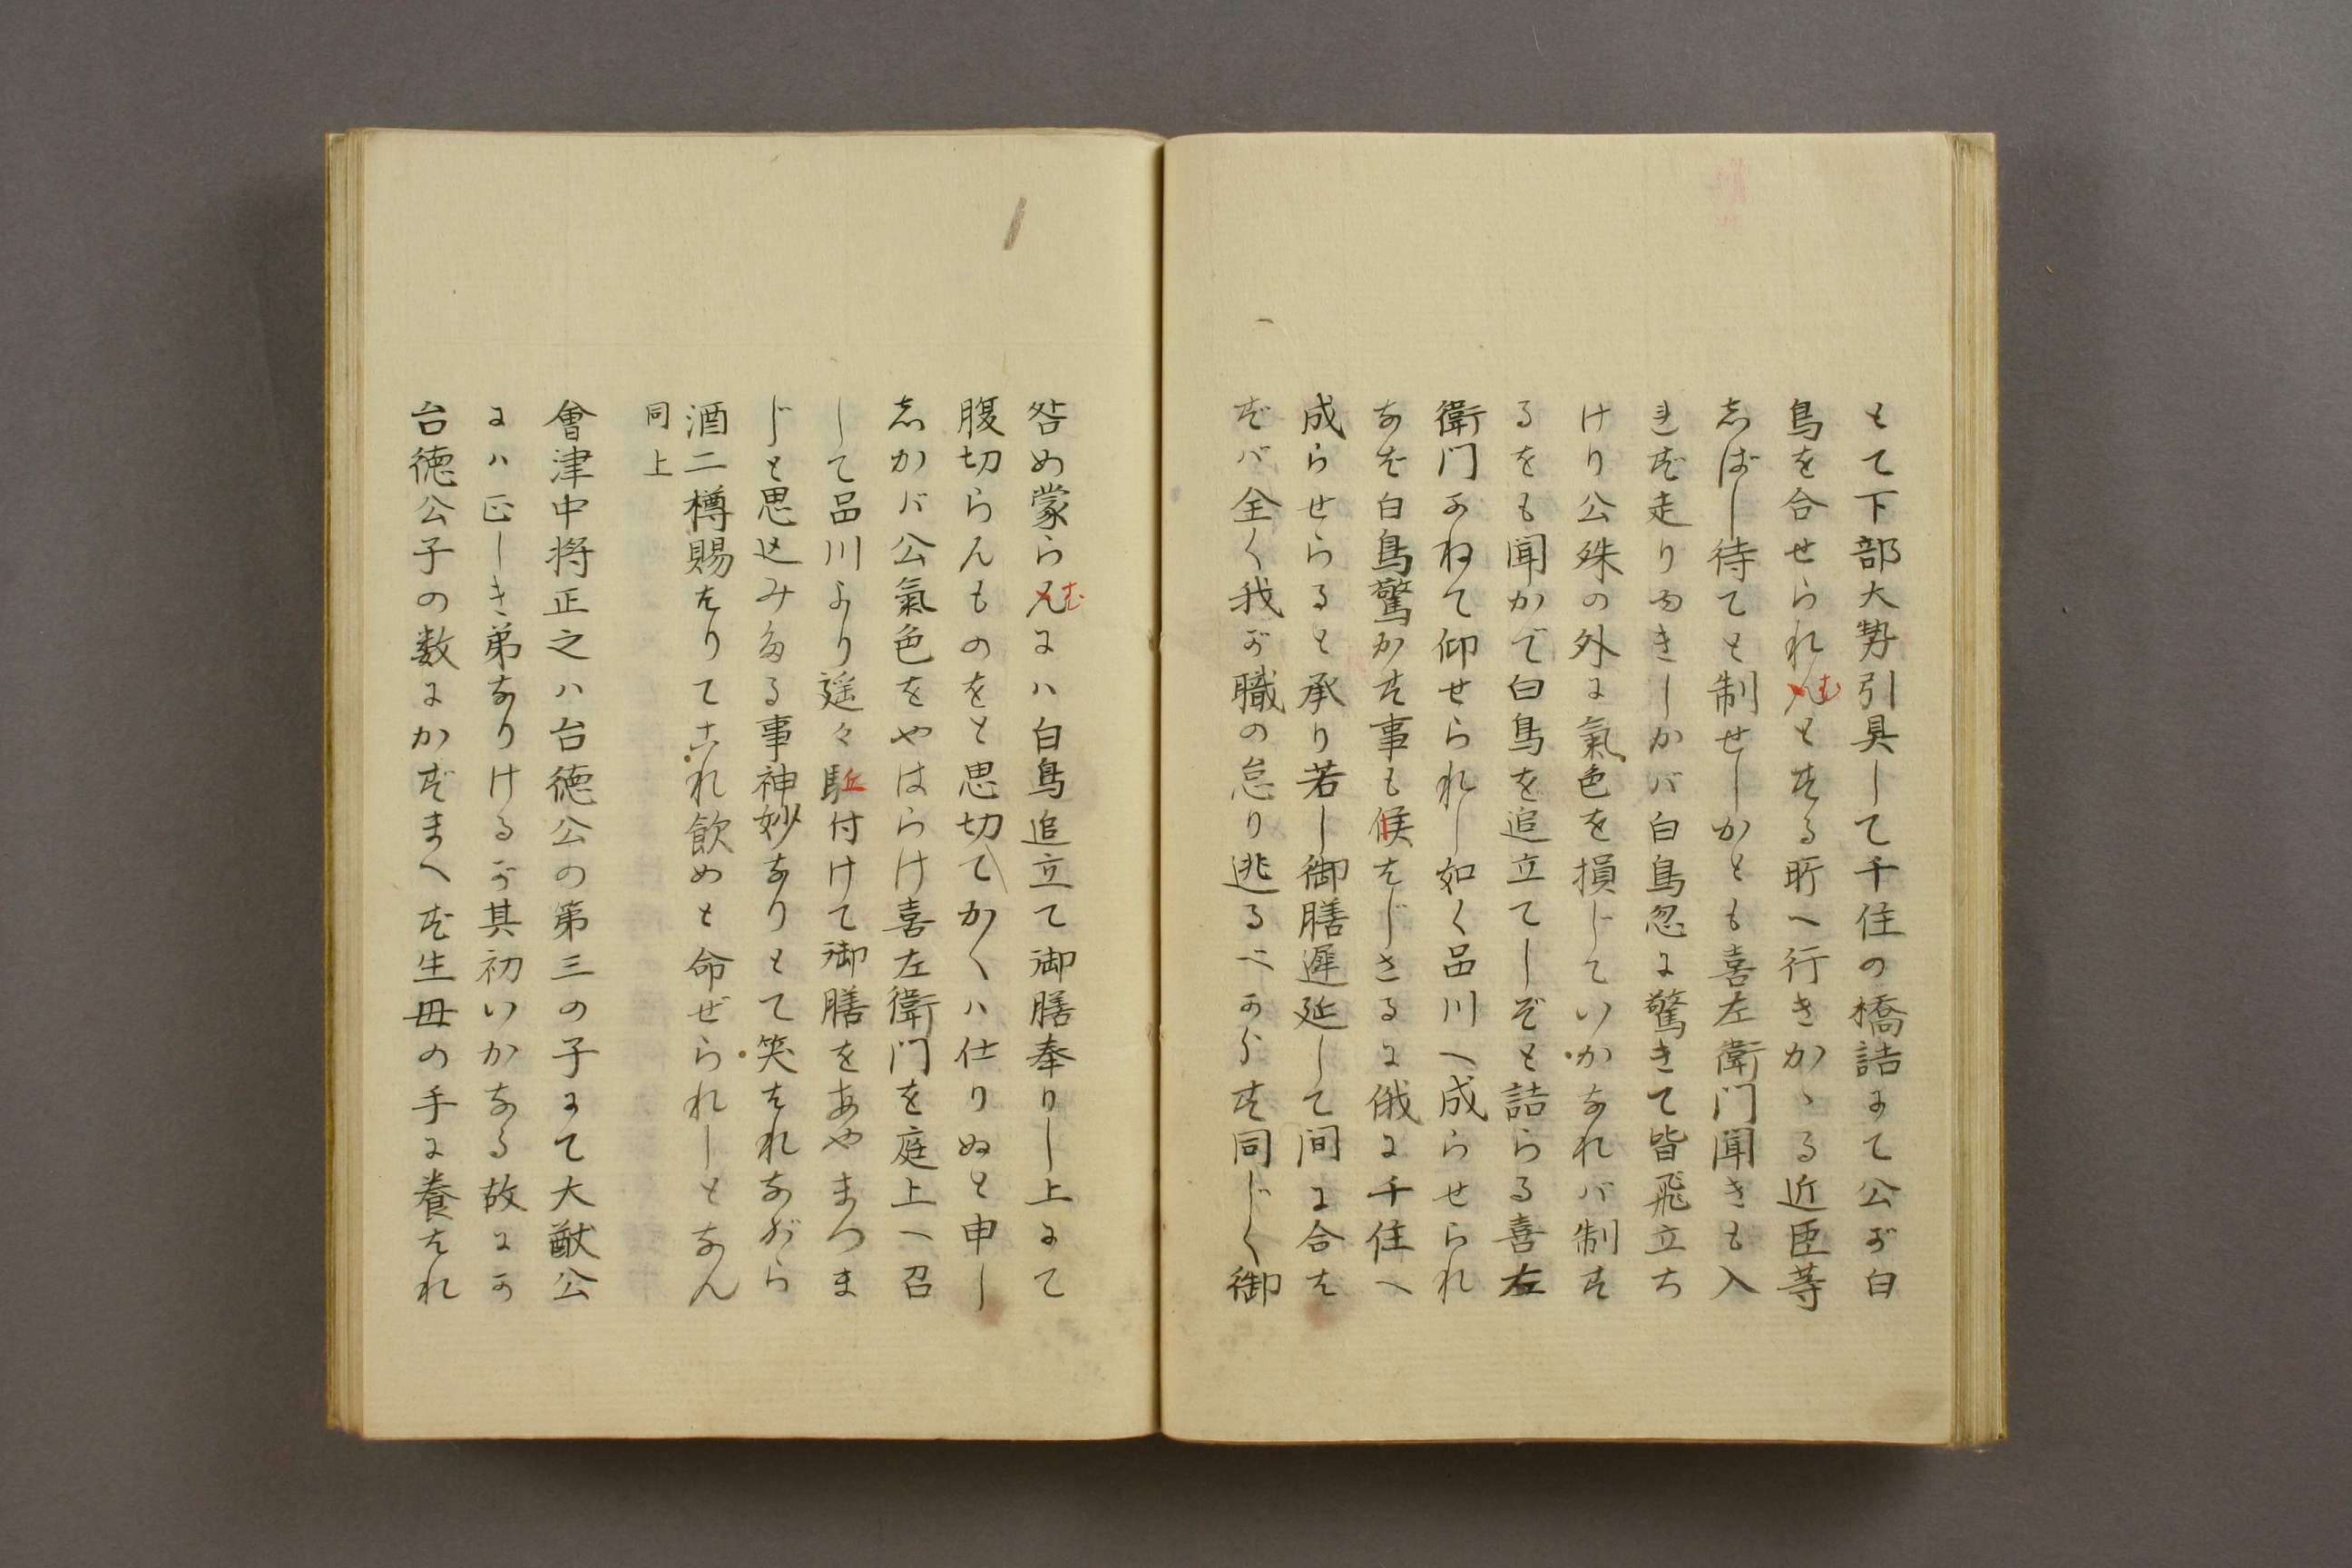 とて下部大勢引具して千住の橋詰にて公が白
鳥を合せられむとする所へ行きかゝる近臣等
しばし待てと制せしかとも喜左衛門聞きも入
れず走りゆきしかバ白鳥忽に驚きて皆飛立ち
けり公殊の外に氣色を損じていかなれバ制す
るをも聞かで白鳥を追立てしぞと詰らる喜左
衛門かねて仰せられし如く品川へ成らせられ
なば白鳥驚かす事も候はじさるに俄に千住へ
成らせらると承り若し御膳遲延して間に合は
ずバ全く我が職の怠り逃るべからず同じく御
咎め蒙らむにハ白鳥追立て御膳奉りし上にて
腹切らんものをと思切てかくハ仕りぬと申し
しかバ公氣色をやはらけ喜左衛門を庭上へ召
して品川より遥々駈付けて御膳をあやまつま
じと思込みたる事神妙なりとて笑はれながら
酒二樽賜はりてこれ飲めと命ぜられしとなん
同上
會津中将正之ハ台徳公の第三の子にて大猷公
にハ正しき弟なりけるが其初いかなる故にか
台徳公子の数にかずまへず生母の手に養はれ